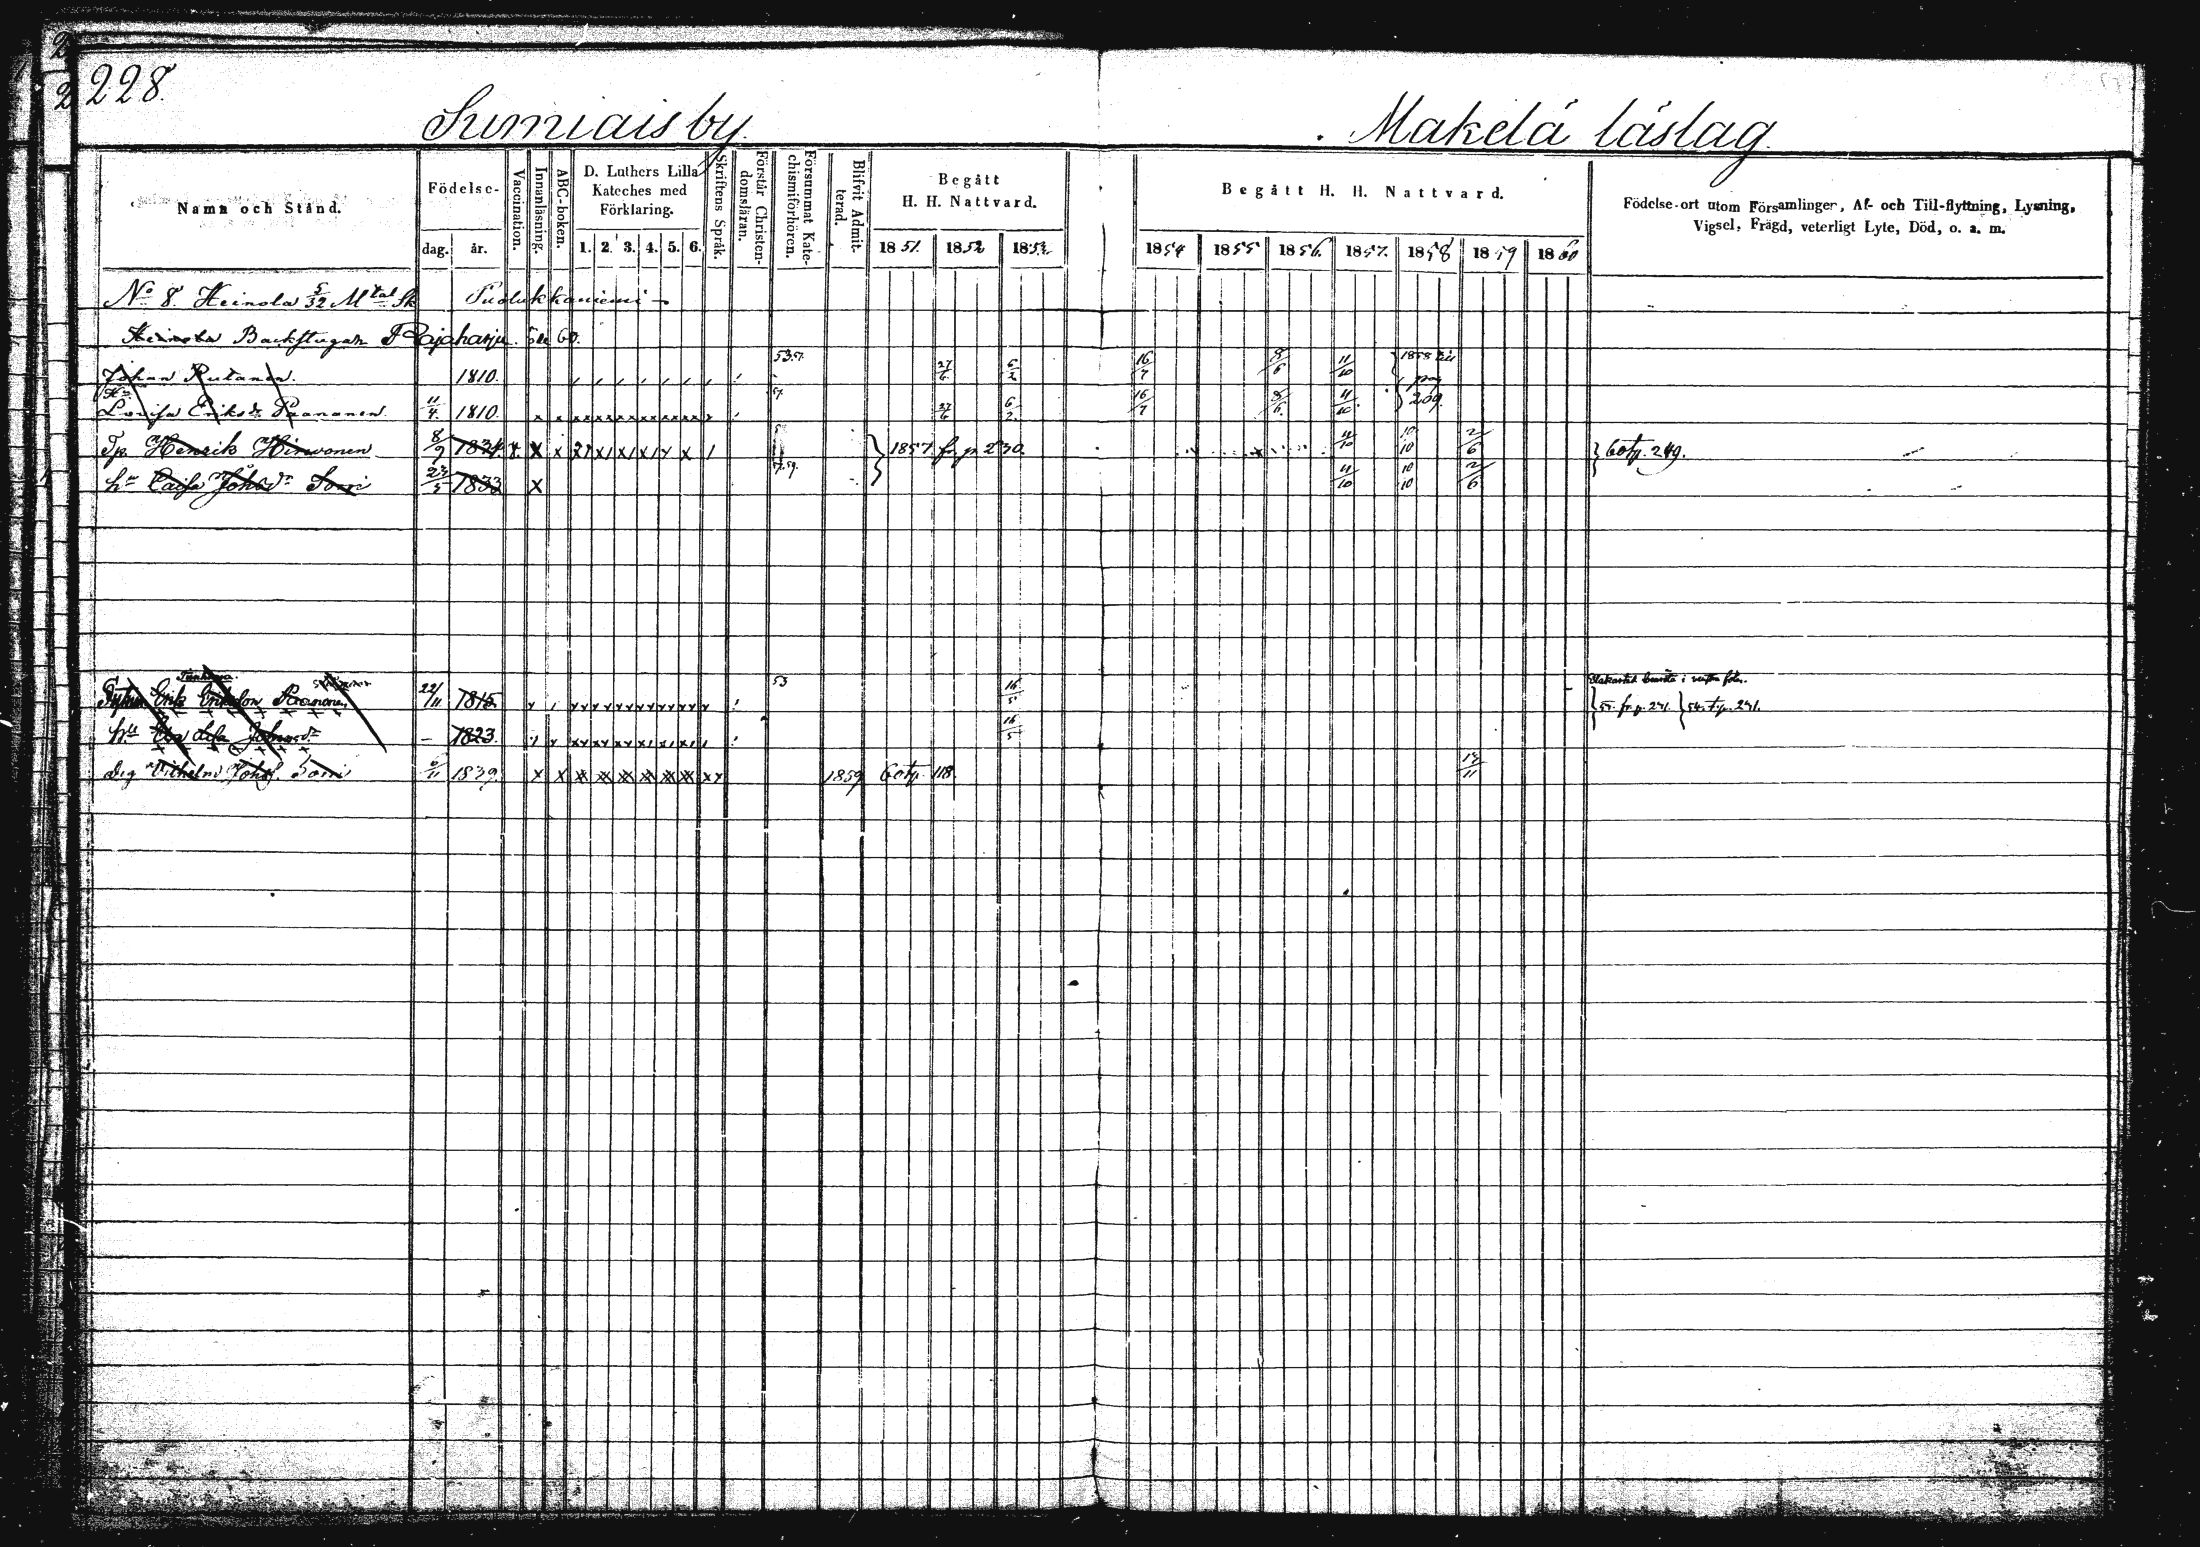 228.
Sumiais by.
Makelä läslag.
Namn och Stånd.
Födelse-
dag. år.
Vaccination.
Innanläsning.
ABC-boken.
D. Luthers Lilla Kateches med Förklaring.
1. 2. 3. 4. 5. 6.
Skriftens Språk.
Förstår Christendomsläran.
Försummat Katechismiförhören.
Blifvit Admitterad.
Begått H. H. Nattvard.
1851. 1852 1853
Begått H. H. Nattvard.
1854 1855 1856. 1857. 1858 1859 1860
Födelse-ort utom Församlingen, Af- och Till-flyttning, Lysning,
Vigsel, Frägd, veterligt Lyte, Död, o. a. m.
No 8. Heinola 5/32 Mtal Sk Puolukkaniemi
Heinola Backstugan Rajaharju. 60.
Johan Rutanen. 1810. 53.57. 27/6 6/2 16/7 8/6 11/10 1858 till
Lovisa Eriksdr Paananen 11/4. 1810. 57. 27/6 6/2 16/7 8/6 11/10 pag 209.
Tp. Henrik Hirvonen 8/9 1834. 1857 fr. p. 230. 11/10 10/10 2/6 60 tp. 249.
hu Caisa Johsdr Sorri 23/5 1833 57.59. 11/10 10/10 2/6
Erik Eriksson Paananen 22/11 1815. 53 16/5
55. fr. p. 241. 54. t. p. 241.
hu Eva Lisa Johansdr – 1823. 16/5
drg Vilhelm Johss. Sorri 6/11 1839. 1859 60 tp. 118. 13/11